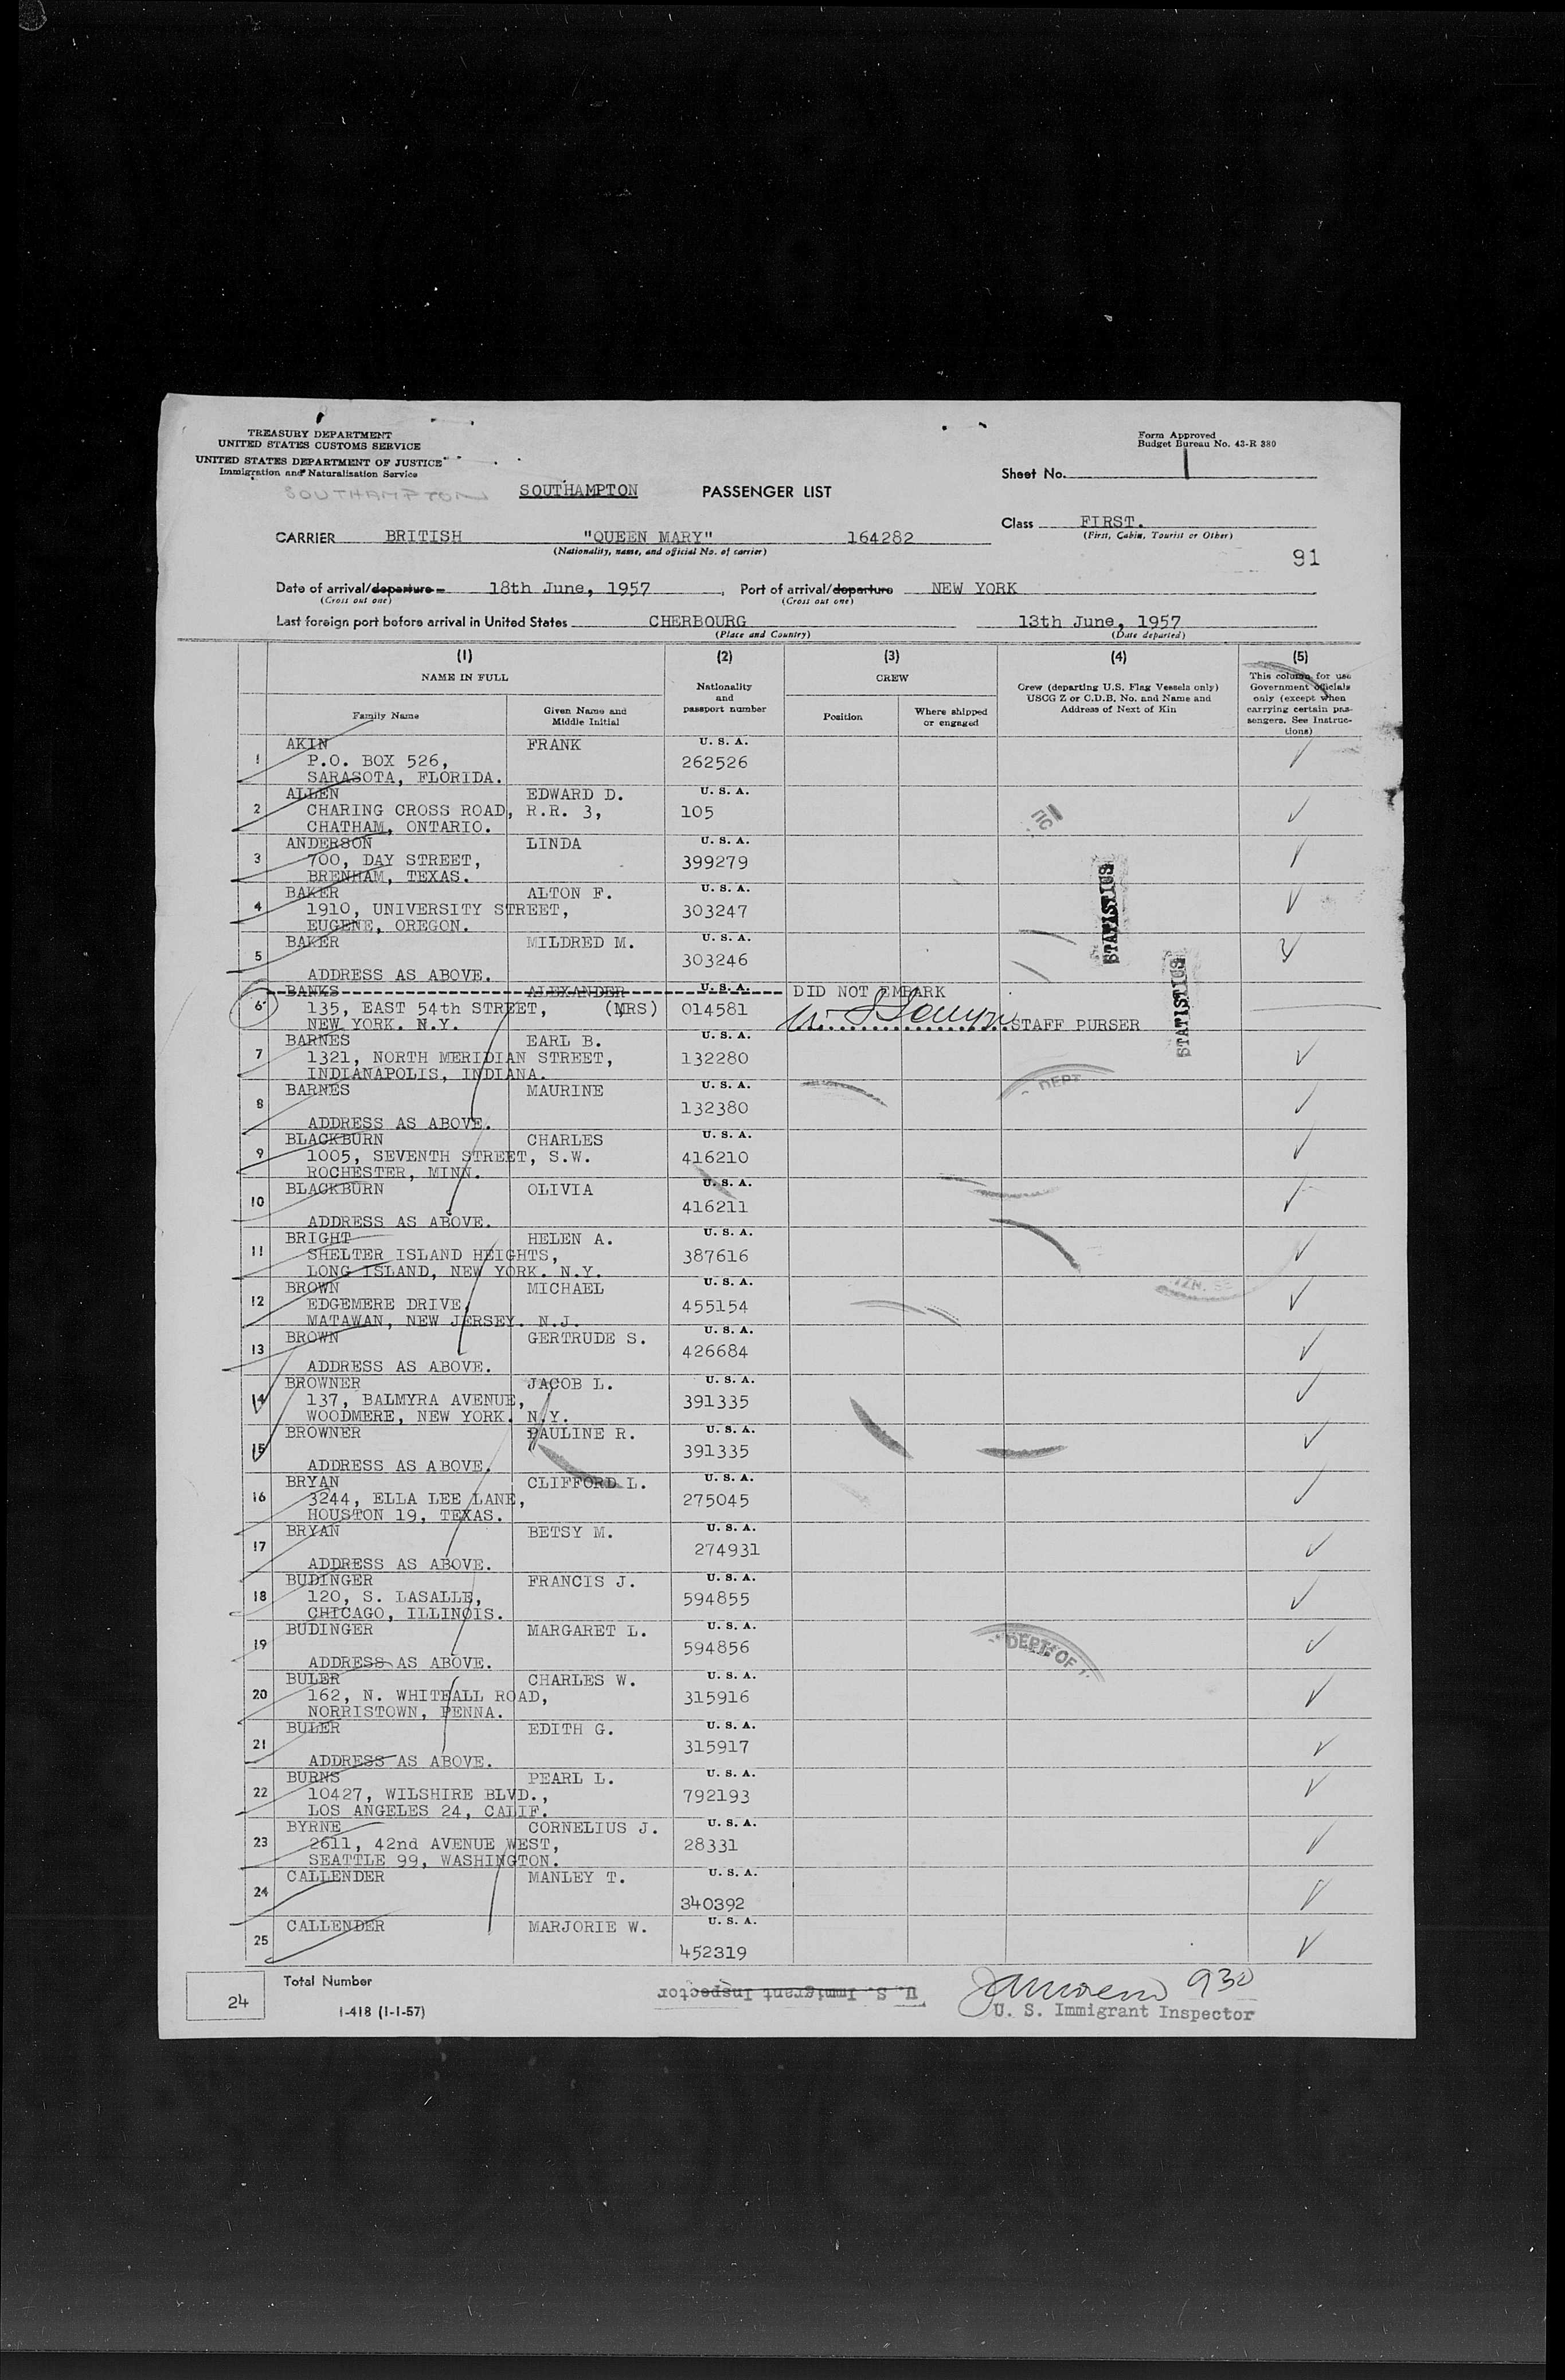 TREASURY DEPARTMENT
UNITED STATES CUSTOMS SERVICE
UNITED STATES DEPARTMENT OF JUSTICE
Immigration and Naturalization Service
Form Approved
Budget Bureau No. 43-R 380
Sheet No. 1
SOUTHAMPTON
SOUTHAMPTON PASSENGER LIST
Class FIRST.
(First, Cabin, Tourist or Other)
CARRIER BRITISH "QUEEN MARY" 164282
(Nationality, name, and official No. of carrier)
91
Date of arrival/departure 18th June, 1957, Port of arrival/departure NEW YORK
(Cross out one) (Cross out one)
Last foreign port before arrival in United States CHERBOURG 13th June, 1957
(Place and Country) (Date departed)
(1) (2) (3) (4) (5)
NAME IN FULL
Family Name
Given Name and Middle Initial
Nationality and passport number
CREW
Position
Where shipped or engaged
Crew (departing U.S. Flag Vessels only)
USCG Z or C.D.B. No. and Name and
Address of Next of Kin
This column for use
Government officials
only (except when
carrying certain pas-
sengers. See Instruc-
tions)
1 AKIN FRANK U. S. A.
P.O. BOX 526, 262526
SARASOTA, FLORIDA.
2 ALLEN EDWARD D. U. S. A.
CHARING CROSS ROAD, R.R. 3, 105
CHATHAM, ONTARIO.
3 ANDERSON LINDA U. S. A.
700, DAY STREET, 399279
BRENHAM, TEXAS.
4 BAKER ALTON F. U. S. A.
1910, UNIVERSITY STREET, 303247
EUGENE, OREGON.
5 BAKER MILDRED M. U. S. A.
303246
ADDRESS AS ABOVE.
STATISTICS
STATISTICS
6 BANKS ALEXANDER U. S. A. DID NOT EMBARK
135, EAST 54th STREET, (MRS) 014581
NEW YORK. N.Y. STAFF PURSER
7 BARNES EARL B. U. S. A.
1321, NORTH MERIDIAN STREET, 132280
INDIANAPOLIS, INDIANA.
8 BARNES MAURINE U. S. A.
132380
ADDRESS AS ABOVE.
DEPT
9 BLACKBURN CHARLES U. S. A.
1005, SEVENTH STREET, S.W. 416210
ROCHESTER, MINN.
10 BLACKBURN OLIVIA U. S. A.
416211
ADDRESS AS ABOVE.
11 BRIGHT HELEN A. U. S. A.
SHELTER ISLAND HEIGHTS, 387616
LONG ISLAND, NEW YORK. N.Y.
12 BROWN MICHAEL U. S. A.
EDGEMERE DRIVE, 455154
MATAWAN, NEW JERSEY. N.J.
13 BROWN GERTRUDE S. U. S. A.
426684
ADDRESS AS ABOVE.
14 BROWNER JACOB L. U. S. A.
137, BALMYRA AVENUE, 391335
WOODMERE, NEW YORK. N.Y.
15 BROWNER PAULINE R. U. S. A.
391335
ADDRESS AS ABOVE.
16 BRYAN CLIFFORD L. U. S. A.
3244, ELLA LEE LANE, 275045
HOUSTON 19, TEXAS.
17 BRYAN BETSY M. U. S. A.
274931
ADDRESS AS ABOVE.
18 BUDINGER FRANCIS J. U. S. A.
120, S. LASALLE, 594855
CHICAGO, ILLINOIS.
19 BUDINGER MARGARET L. U. S. A.
594856
ADDRESS AS ABOVE.
DEPT OF
20 BULER CHARLES W. U. S. A.
162, N. WHITEALL ROAD, 315916
NORRISTOWN, PENNA.
21 BULER EDITH G. U. S. A.
315917
ADDRESS AS ABOVE.
22 BURNS PEARL L. U. S. A.
10427, WILSHIRE BLVD., 792193
LOS ANGELES 24, CALIF.
23 BYRNE CORNELIUS J. U. S. A.
2611, 42nd AVENUE WEST, 28331
SEATTLE 99, WASHINGTON.
24 CALLENDER MANLEY T. U. S. A.
340392
25 CALLENDER MARJORIE W. U. S. A.
452319
24 Total Number
I-418 (1-1-57)
U. S. Immigrant Inspector
930
U. S. Immigrant Inspector